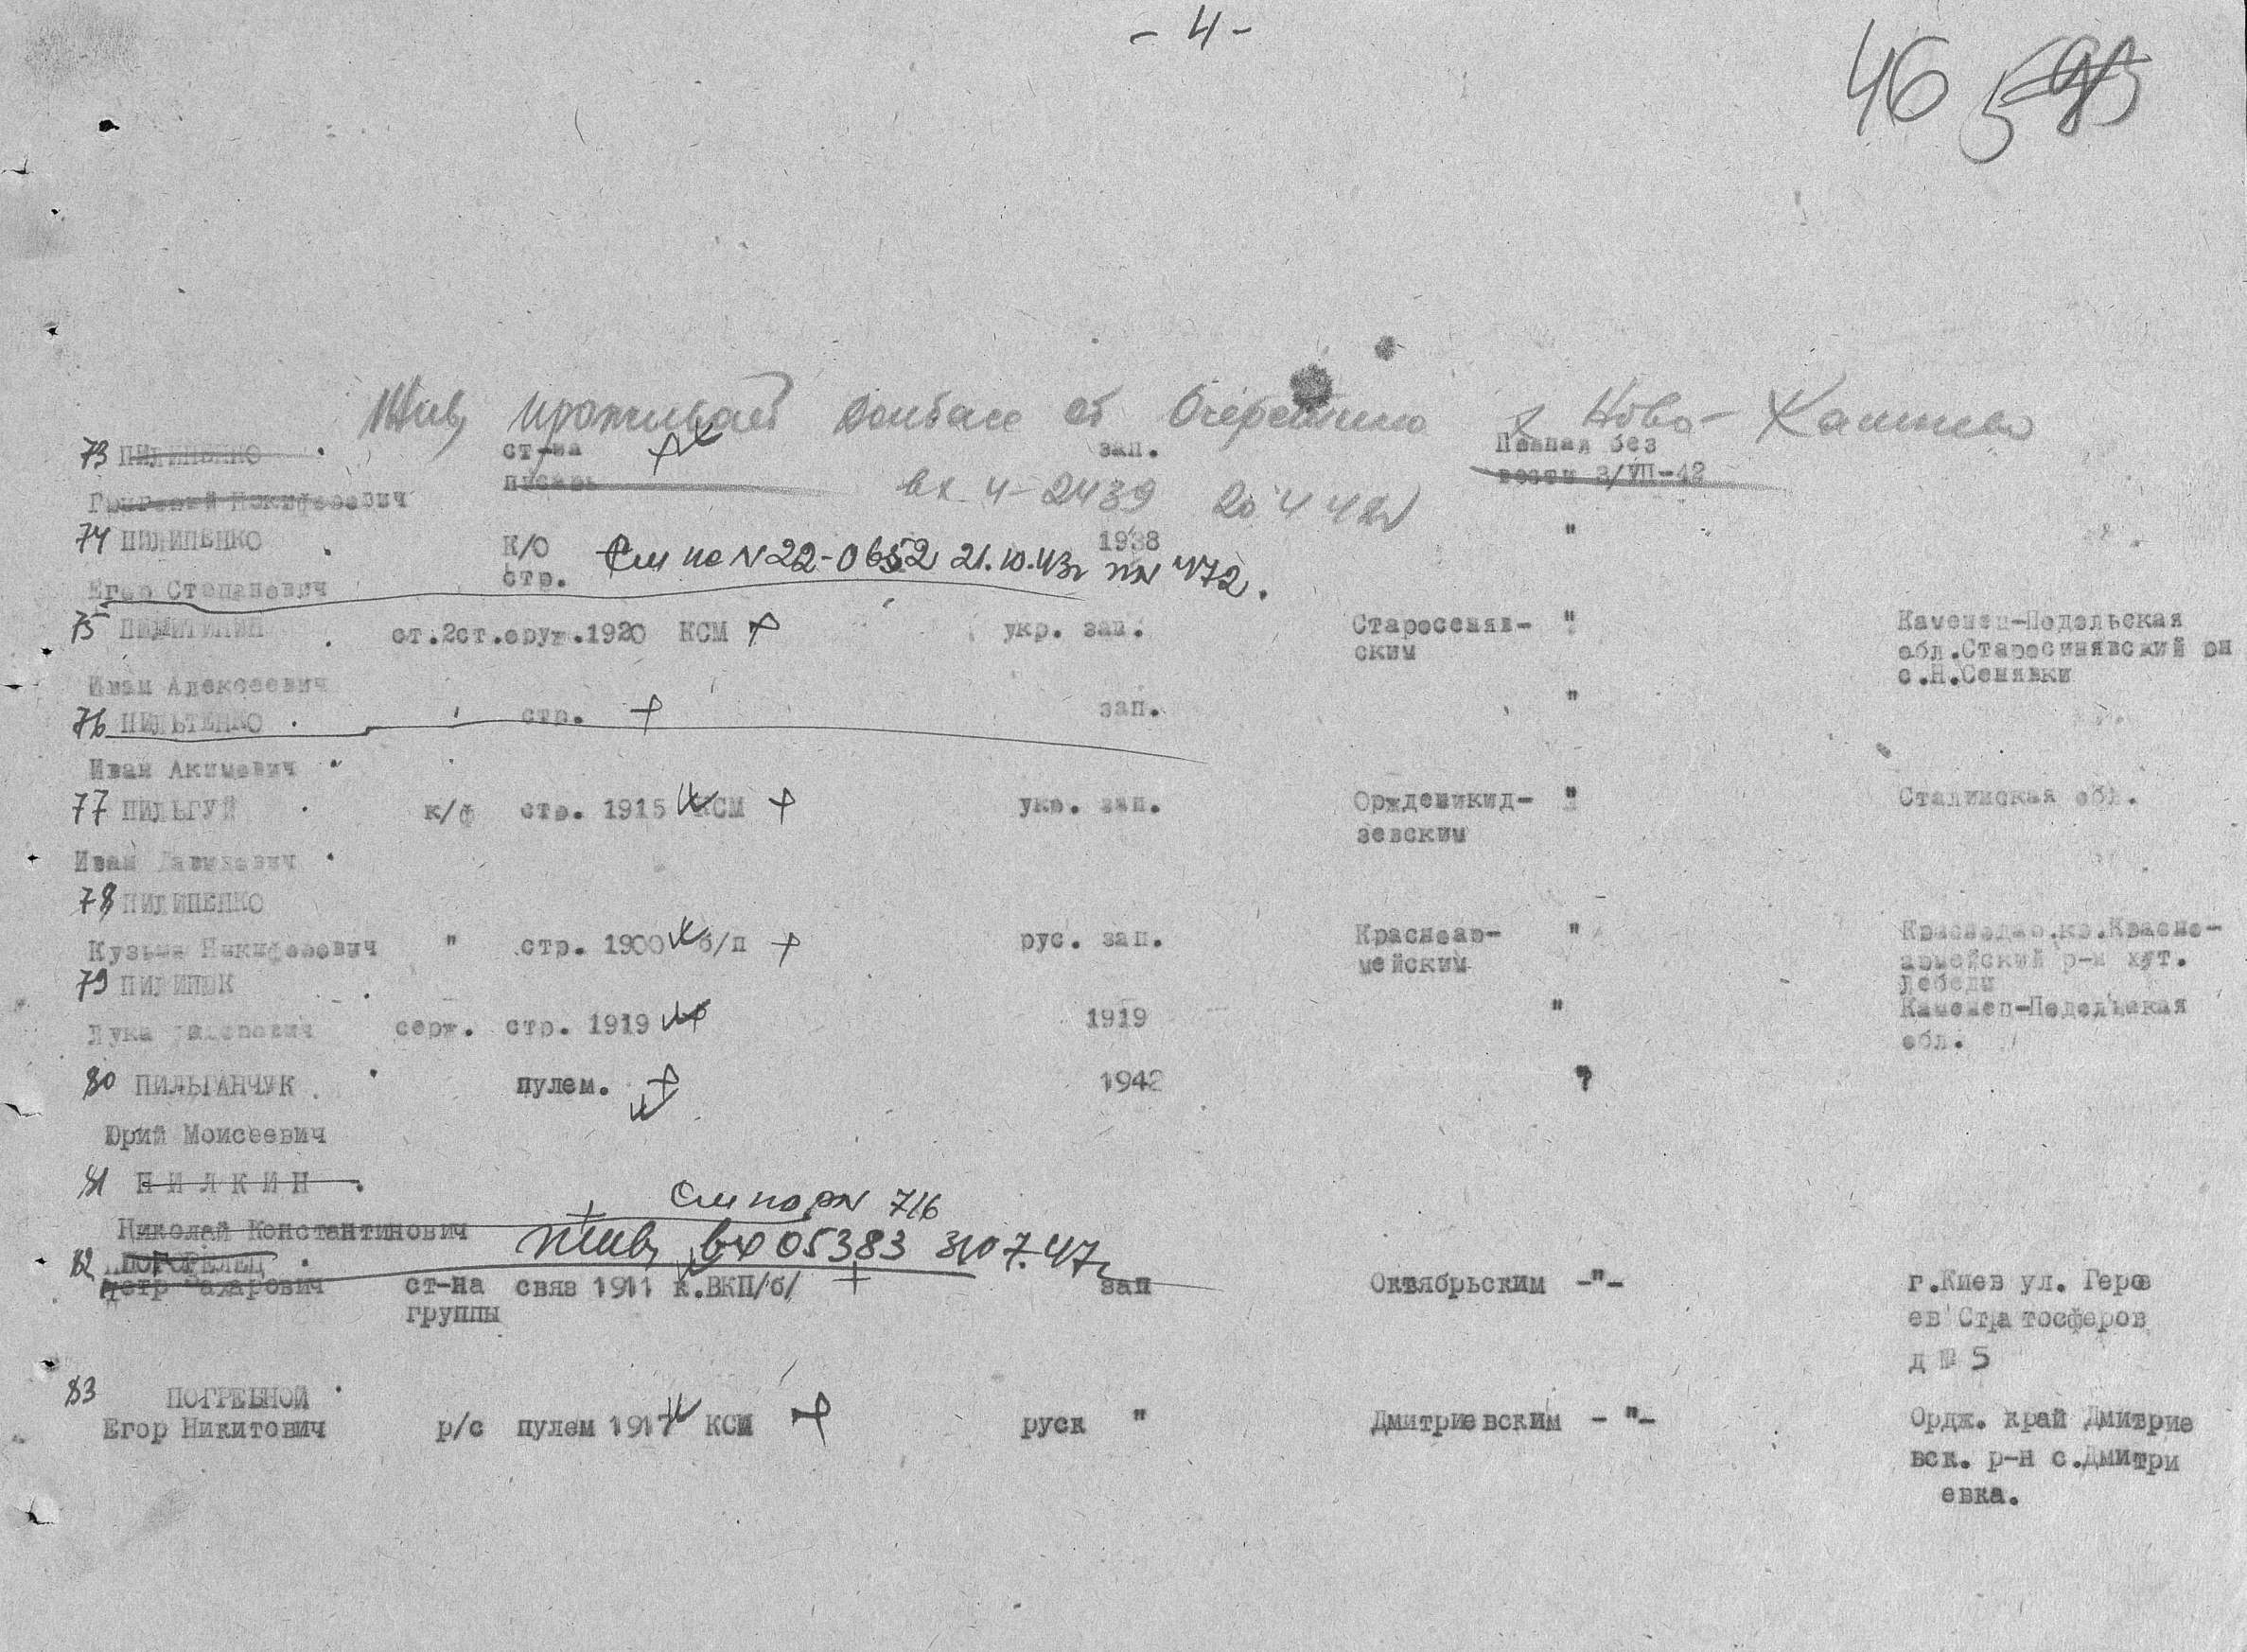 - 4 -
46
Жив, проживает Донбасс ст Очеретино х Ново-
73 ПИЛИПЕНКО ст-на зап. Пропал без
писарь вх 4-2439 вести 3/УП-42
Григорий Никифорович
74 ПИЛИПЕНКО К/О 1938 "
См по N 22-0652 21.10.43г пN 472.
Егор Степанович стр.
75 ст.2ст.оруж.1920 КСМ укр. зап. Старосеняв- " Каменец-Подольская
ским обл.Старосинявский рн
Иван Алексеевич с.Н.Сенявки
76 ПИЛЬТЕНКО стр. зап. "
Иван Акимович
77 ПИЛЬГУЙ к/ф стр. 1915 КСМ укр. зап. Орждоникид- " Сталинская обл.
зевским
Иван
78 ПИЛИПЕНКО
Кузьма Никифорович " стр. 1900 б/п рус. зап. Красноар- " Краснодар.кр.Красно-
мейским армейский р-н хут.
79 ПИЛИПЮК Лебеди
Лука серж. стр. 1919 1919 " Каменец-Подольская
обл.
80 ПИЛЬГАНЧУК пулем. 1942 "
Юрий Моисеевич
81 ПИЛКИН
См по рN 716
Николай Константинович
жив, вх 05383
82 ПОГОРЕЛЕЦ
Петр Захарович ст-на связ 1911 к.ВКП/б/ зап Октябрьским -"- г.Киев ул. Геро
группы ев Стратосферов
д № 5
83 ПОГРЕБНОЙ
Егор Никитович р/с пулем 1917 КСМ руск " Дмитриевским -"- Ордж. край Дмитрие
вск. р-н с.Дмитри
евка.